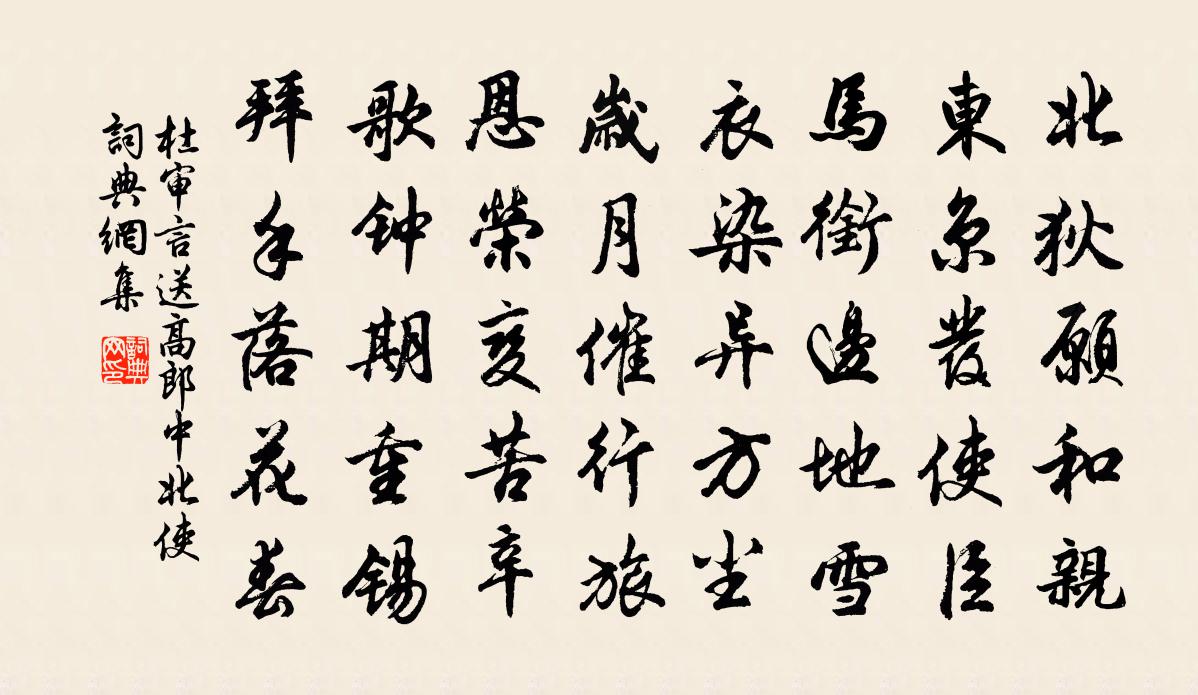 北狄願和親
東京發使臣
馬銜邊地雪
衣染异方尘
歲月催行旅
恩榮変苦辛
歌钟期重锡
拜手落花春
杜审言送高郎中北使
詞典網集
詞典网印